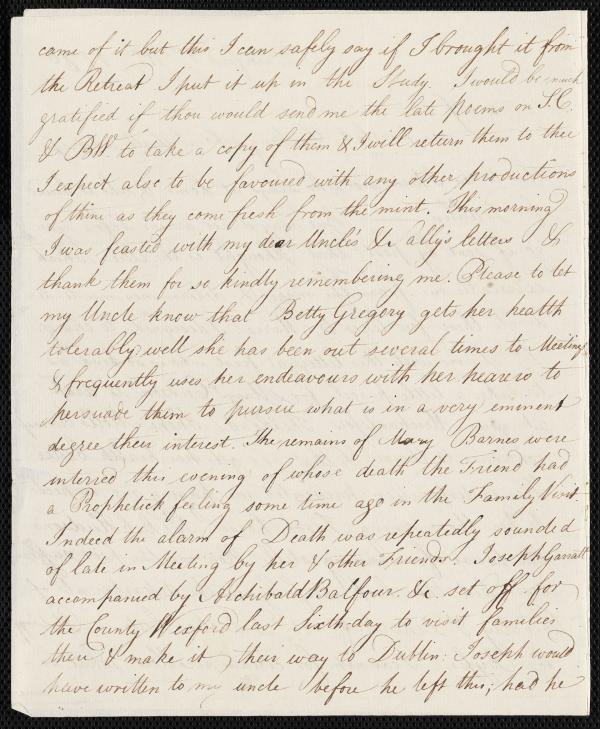 came of it but this I can safely say if I brought it from
the Retreat I put it up in the Study. I would be much
gratified if thou would send me the late poems on S.C.
& BW to take a copy of them & I will return them to thee
I expect also to be favoured with any other productions
of thine as they come fresh from the mint. This morning
I was feasted with my dear Uncle's & Sally's letters &
thank them for so kindly remembering me. Please to let
my Uncle know that Betty Gregory gets her health
tolerably well she has been out several times to Meeting
& frequently uses her endeavours with her hearers to
persuade them to pursue what is in a very eminent
degree their interest. The remains of Mary Barnes were
interred this evening of whose death the Friend had
a Prophetick feeling some time ago in the Family Visit.
Indeed the alarm of Death was repeatedly sounded
of late in Meeting by her & other Friends. Joseph Garratt
accompanied by Archibald Balfour &c. set off for
the County Wexford last Sixth-day to visit families
there & make it their way to Dublin: Joseph would
have written to my uncle before he left this; had he